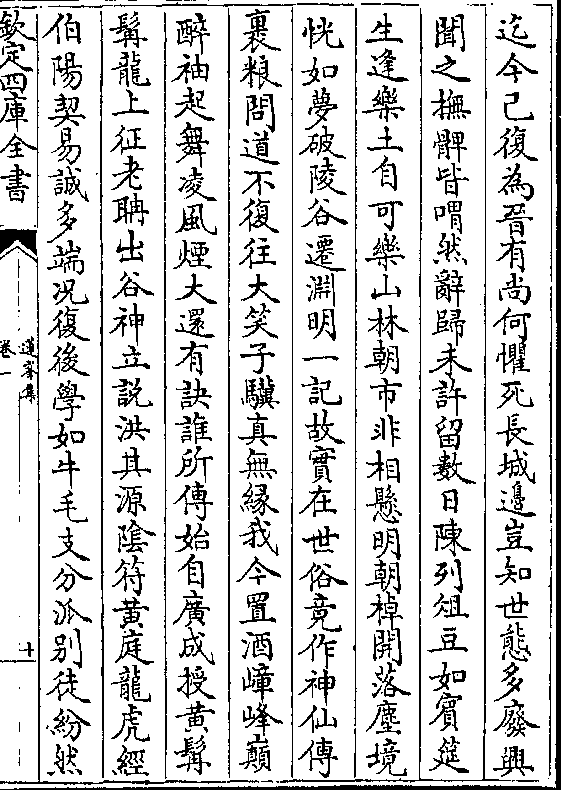 迄今已復為晉有尚何懼死長城邊豈知世態多廢興
聞之撫髀皆喟然辭歸未許留數日陳列俎豆如賓筵
生逢樂土自可樂山林朝市非相懸明朝棹開落塵境
恍如夢破陵谷遷淵明一記故實在世俗竟作神仙傳
裹粮問道不復往大笑子驥真無縁我今置酒嶂峰巔
醉袖起舞凌風煙大還有訣誰所傳始自廣成授黃髯
髯龍上征老聃出谷神立說洪其源隂符黃庭龍虎經
伯陽契易誠多端况復後學如牛毛支分派別徒紛然
欽定四庫全書
卷一
十